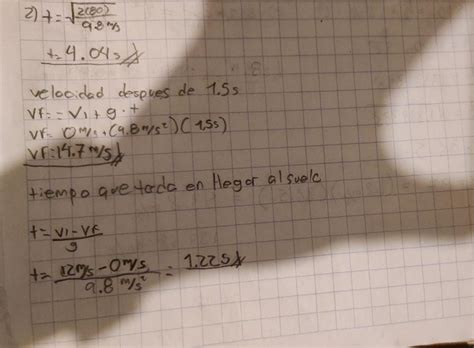 2) t = √2(80)
9.8 m/s
t = 4.04s
velocidad despues de 1.5s
Vf = = Vi + g · t
Vf = 0 m/s · (9.8 m/s²) (1.5s)
Vf = 14.7 m/s
tiempo que tarda en llegar al suelo
t = Vi - Vf
g
t = 12 m/s - 0 m/s = 1.22s
9.8 m/s²